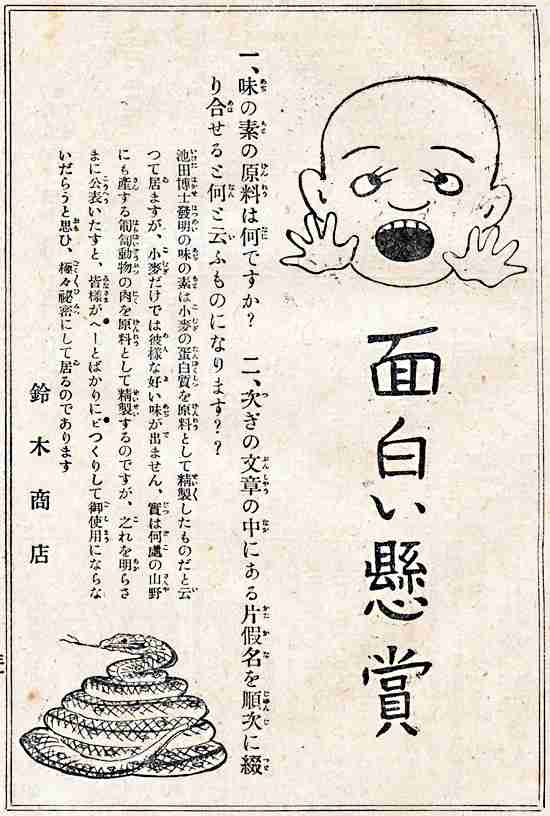 面白い懸賞
一、味の素の原料は何ですか? 二、次ぎの文章の中にある片假名を順次に綴
り合せると何と云ふものになります??
池田博士發明の味の素は小麥の蛋白質を原料として精製したものだと云
つて居ますが、小麥だけでは彼樣な好い味が出ません、實は何處の山野
にも產する匍匐動物の肉を原料として精製するのですが、之れを明らさ
まに公表いたすと、皆樣がヘーとばかりにビつくりして御使用にならな
いだらうと思ひ、極々祕密にして居るのであります
鈴木商店